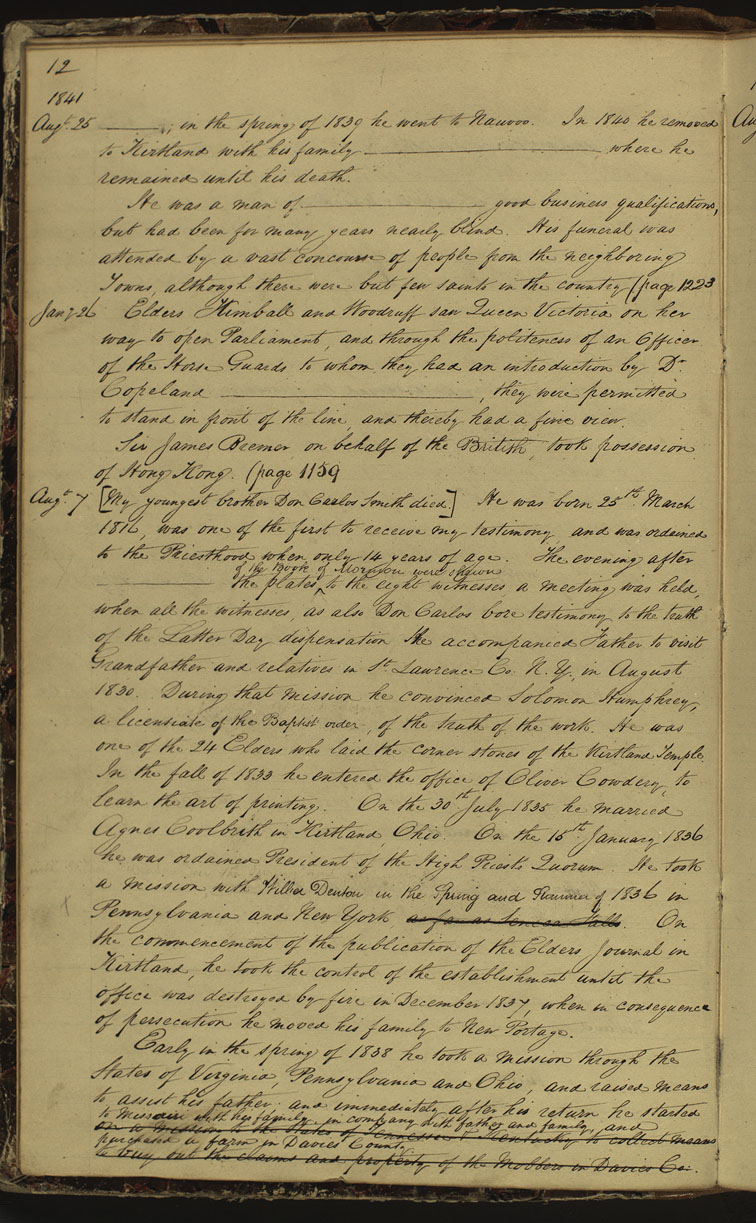 12
1841
Augt. 25 ———; in the spring of 1839 he went to Nauvoo. In 1840 he removed
to Kirtland with his family ——— where he
remained until his death.
He was a man of ——— good business qualifications,
but had been for many years nearly blind. His funeral was
attended by a vast concourse of people from the neighboring
Towns, although there were but few saints in the country (page 1223
Jany 26 Elders Kimball and Woodruff saw Queen Victoria on her
way to open Parliament, and through the politeness of an Officer
of the Horse Guards, to whom they had an introduction by Dr.
Copeland ———, they were permitted
to stand in front of the line, and thereby had a fine view.
Sir James Bremer, on behalf of the British, took possession
of Hong Kong. (page 1159
Augt. 7 [My youngest brother Don Carlos Smith died.] He was born 25th. March
1816, was one of the first to receive my testimony, and was ordained
to the Priesthood when only 14 years of age. The evening after
of the Book of Mormon were shown
——— the plates ^ to the eight witnesses a meeting was held,
when all the witnesses, as also Don Carlos bore testimony to the truth
of the Latter Day dispensation He accompanied Father to visit
Grandfather and relatives in St. Lawrence Co. N. Y. in August
1830. During that mission he convinced Solomon Humphrey,
a licensiate of the Baptist order, of the truth of the work. He was
one of the 24 Elders who laid the corner stones of the Kirtland Temple.
In the fall of 1833 he entered the office of Oliver Cowdery, to
learn the art of printing. On the 30th July 1835 he married
Agnes Coolbrith in Kirtland, Ohio On the 15th. January 1836
he was ordained President of the High Priests Quorum. He took
a mission with Wilber Denton in the Spring and Summer of 1836 in
Pennsylvania and New York as far as Seneca Falls. On
the commencement of the publication of the Elders Journal in
Kirtland, he took the control of the establishment until the
office was destroyed by fire in December 1837, when in consequence
of persecution he moved his family to New Portage.
Early in the spring of 1838 he took a mission through the
States of Virginia, Pennsylvania and Ohio, and raised means
to assist his father; and immediately after his return he started
to Missouri with his family, in company with father and family, and
on a mission to the States of Tennessee & Kentucky to collect means
purchased a farm in Davies' County
to buy out the claims and property of the Mobbers in Davies Co.